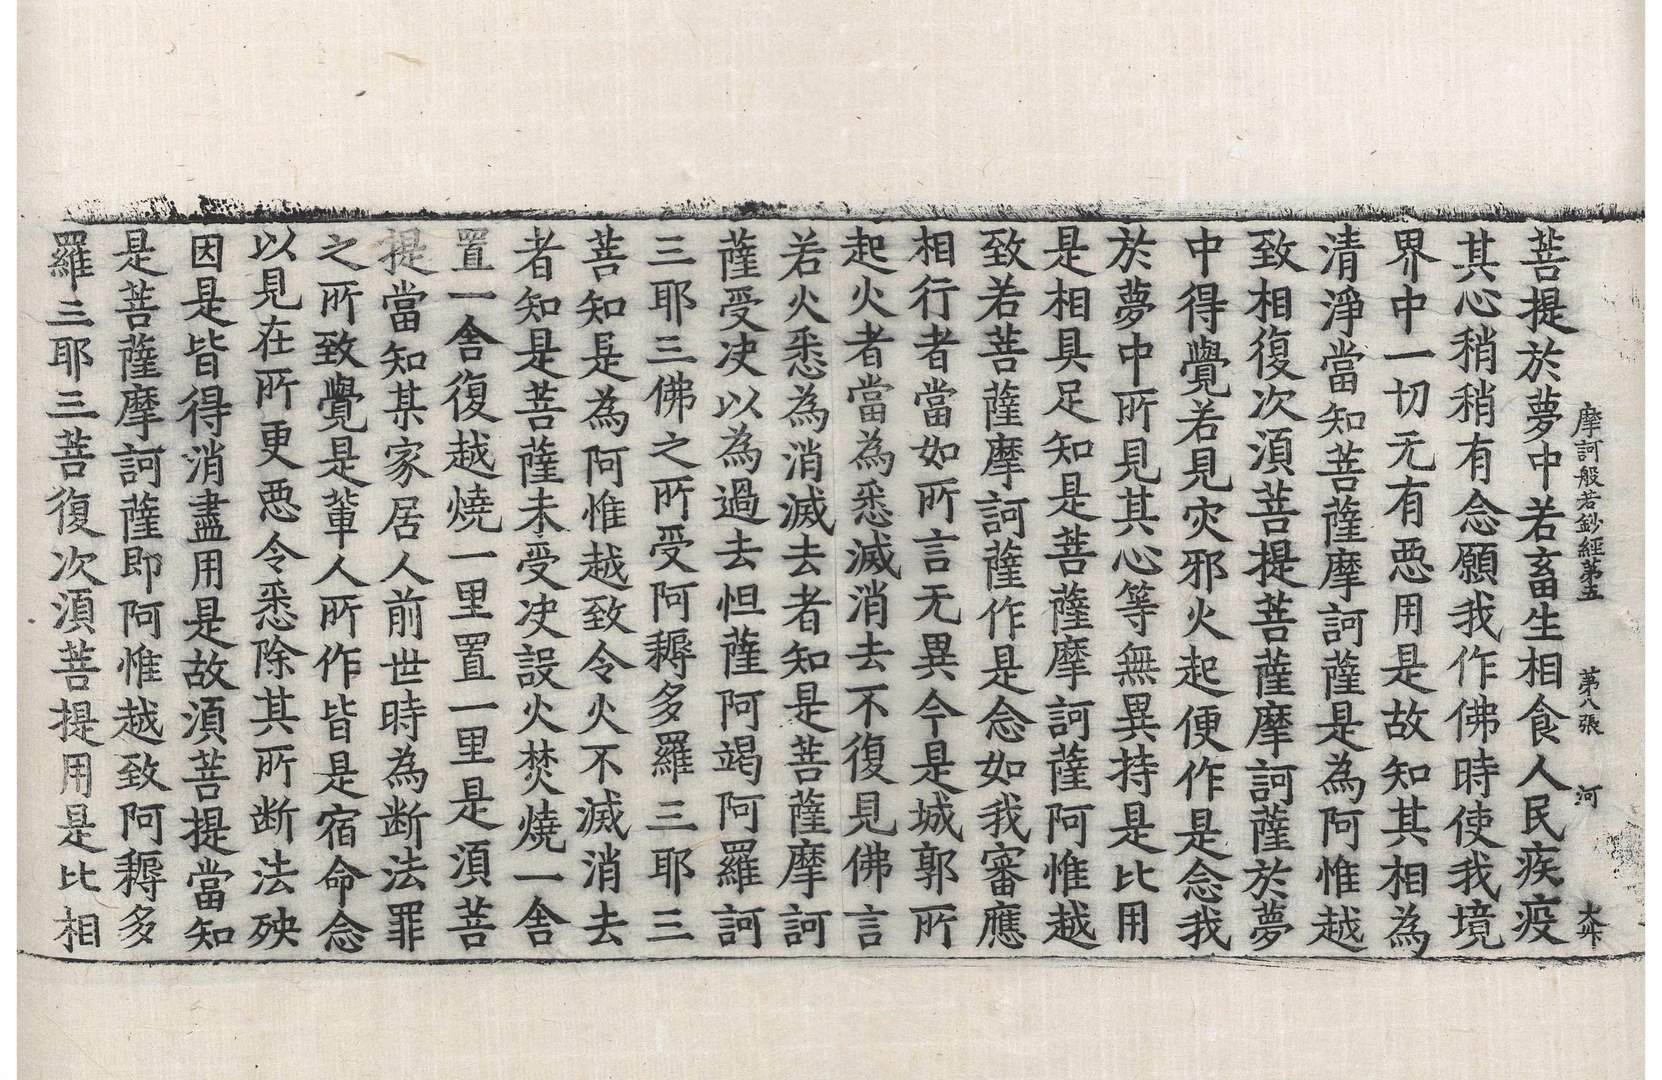 摩訶般若鈔經第五 第八張 河 大升
菩提於夢中若畜生相食人民疾疫
其心稍稍有念願我作佛時使我境
界中一切无有惡用是故知其相為
清淨當知菩薩摩訶薩是為阿惟越
致相復次須菩提菩薩摩訶薩於夢
中得覺若見灾邪火起便作是念我
於夢中所見其心等無異持是比用
是相具足知是菩薩摩訶薩阿惟越
致若菩薩摩訶薩作是念如我審應
相行者當如所言无異今是城郭所
起火者當為悉滅消去不復見佛言
若火悉為消滅去者知是菩薩摩訶
薩受决以為過去怛薩阿竭阿羅訶
三耶三佛之所受阿耨多羅三耶三
菩知是為阿惟越致令火不滅消去
者知是菩薩未受决設火焚燒一舍
置一舍復越燒一里置一里是須菩
提當知某家居人前世時為断法罪
之所致覺是輩人所作皆是宿命念
以見在所更惡令悉除其所断法殃
因是皆得消盡用是故須菩提當知
是菩薩摩訶薩即阿惟越致阿耨多
羅三耶三菩復次須菩提用是比相